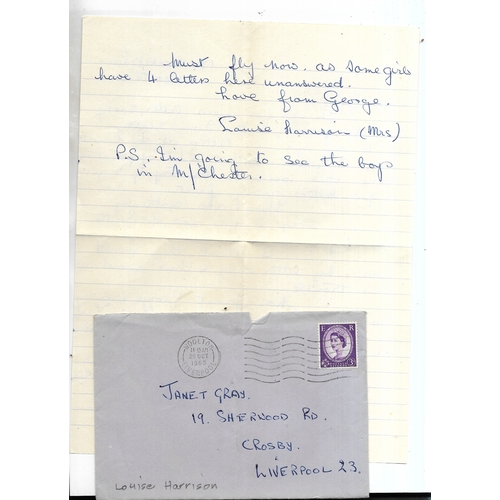 Must fly now. as some girls
have 4 letters here unanswered.
Love from George.
Louise Harrison (Mrs)
P.S. I'm going to see the boys
in M/Chester.
JANET GRAY.
19. SHERWOOD RD.
CROSBY.
LIVERPOOL 23.
Louise Harrison